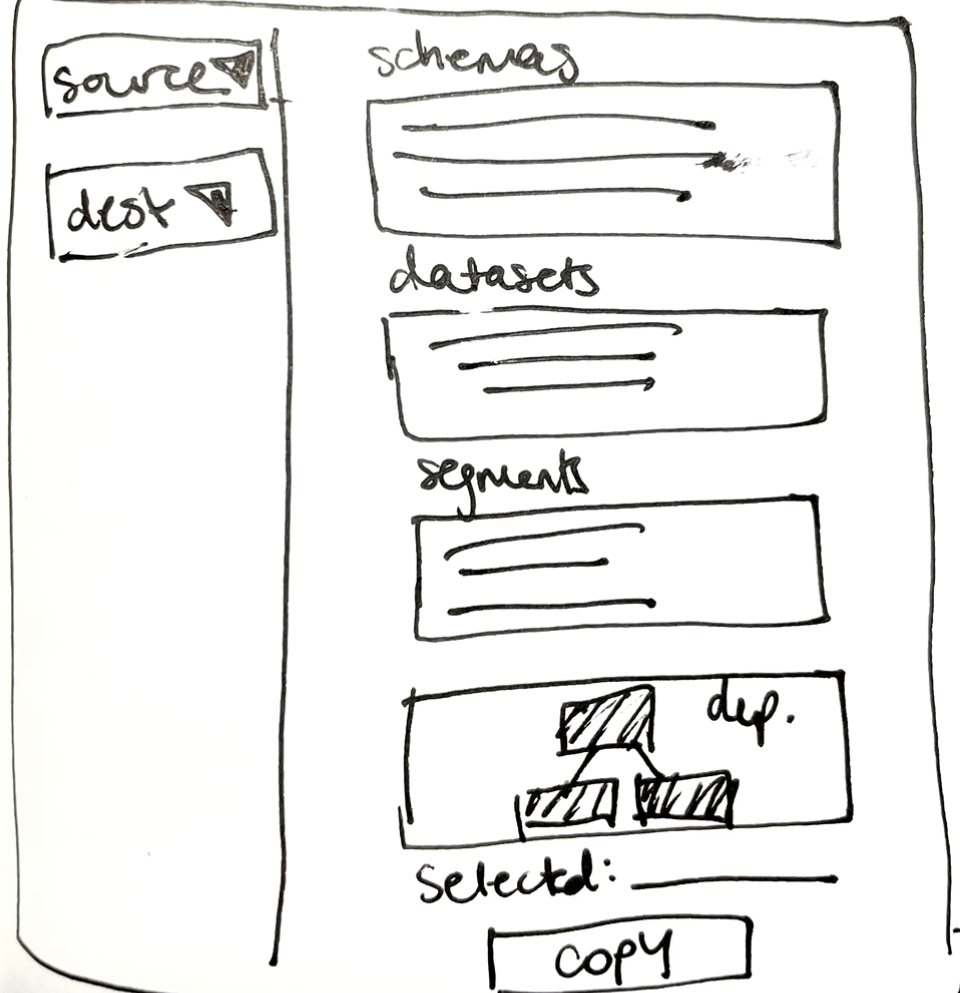 source
dest
schemas
datasets
segments
dep.
selected:
COPY